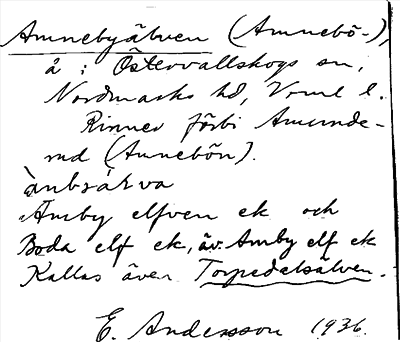 Amnebyälven (Amnebö-),
å i Östervallskogs sn,
Nordmarks hd, Vrml l.
Rinner förbi Amunde-
rud (Annebön).
Åmby elfven ek och
Boda elf ek, äv. Amby elf ek
Kallas även Torpedalsälven.
E. Andersson 1936.